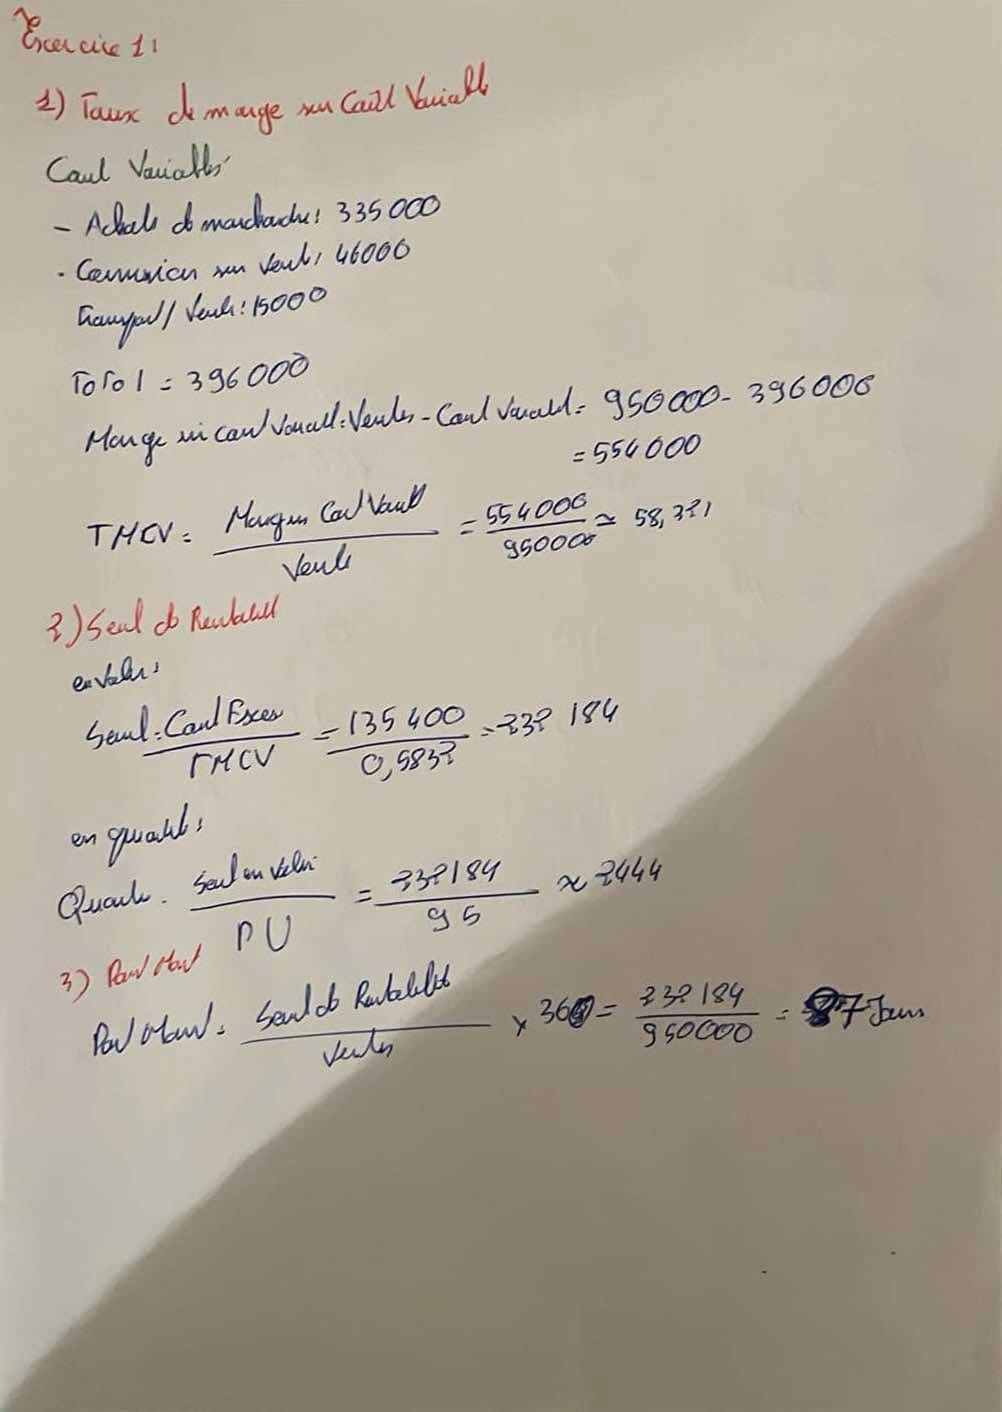 Exercice 1:
1) Taux de marge sur Coût Variable
Cout Variables
- Achats de marchandise: 335000
- Commission sur vent: 46000
Transport/Vente: 15000
Total = 396000
Marge sur cout Variable: Ventes - Cout Variable = 950000 - 396000
= 554000
TMCV = Marge sur Cout Variable / Vente = 554000 / 950000 ≃ 58,32%
2) Seuil de Rentabilité
en valeur:
Seuil = Cout Fixes / TMCV = 135400 / 0,5832 = 232 184
en quantité:
Quantité = Seuil en valeur / PU = 232184 / 95 ≈ 2444
3) Point Mort
Point Mort = Seuil de Rentabilité / Ventes x 360 = 232184 / 950000 = 87 Jours